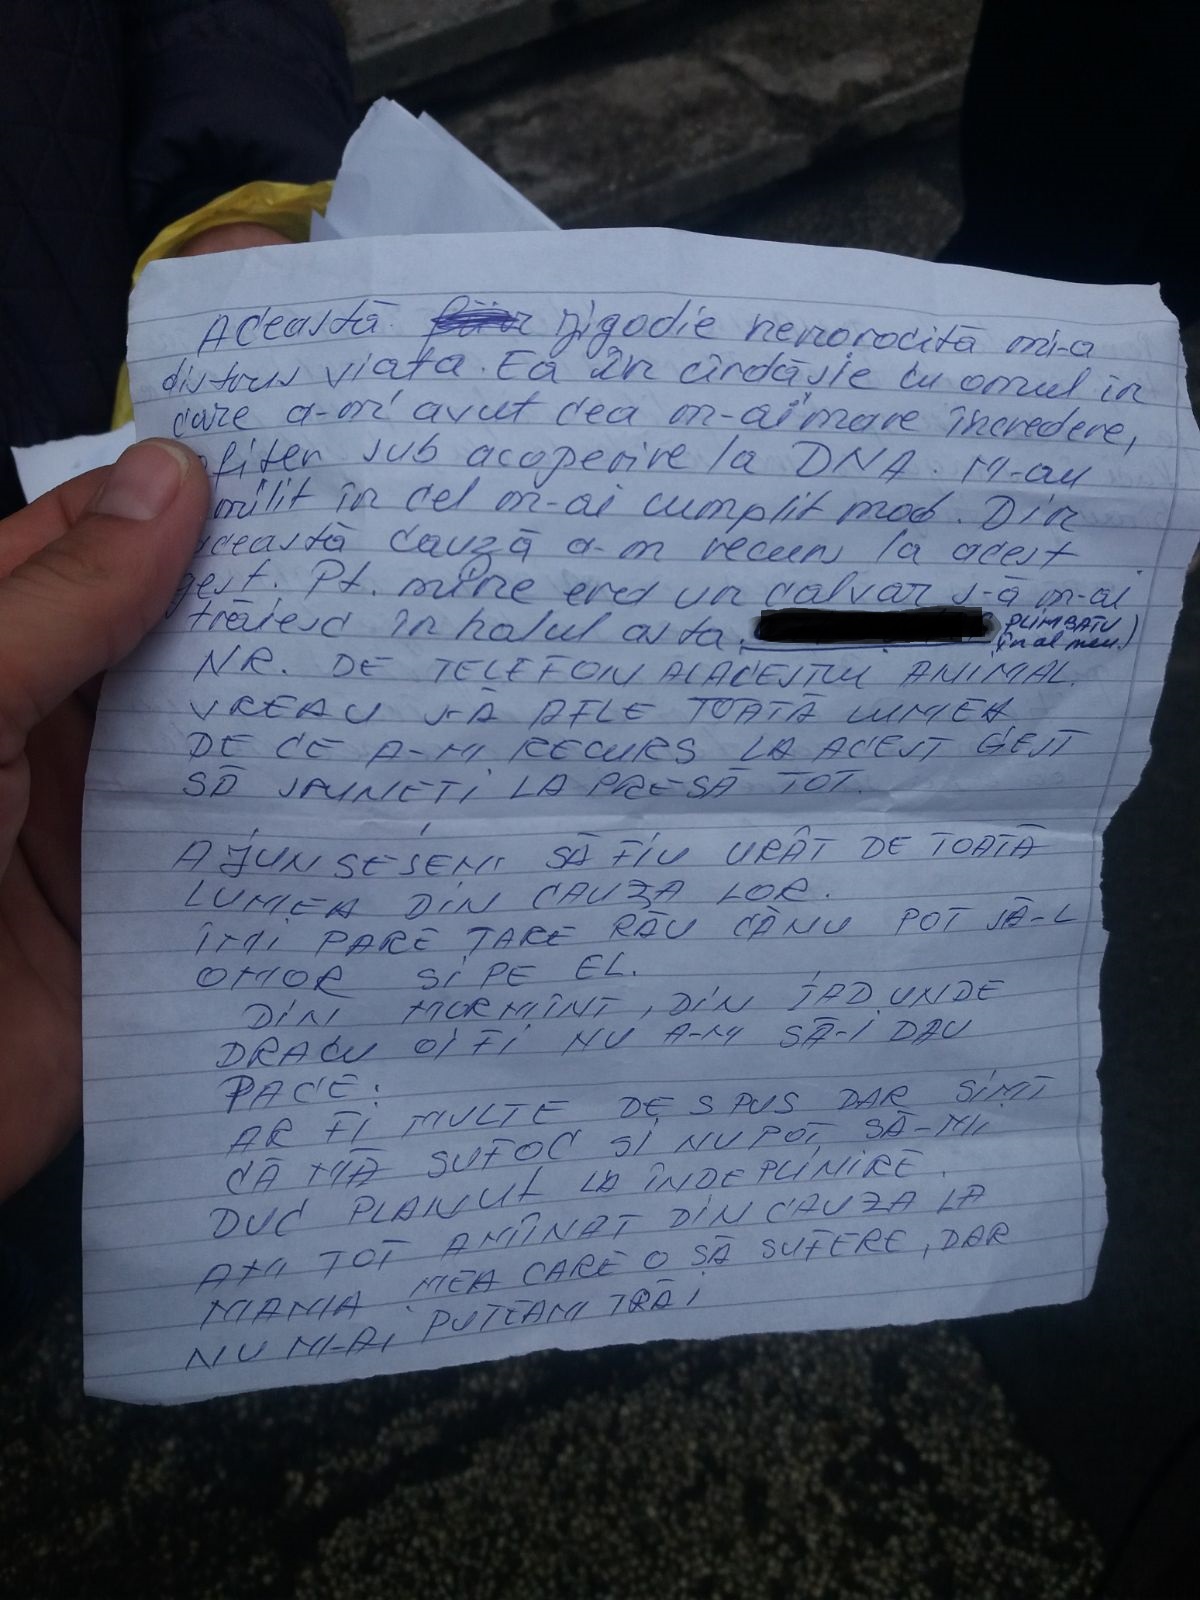 Această jigodie nenorocită mi-a
distrus viata. Ea în cîrdăsie cu omul în
care a-m avut cea m-ai mare încredere,
ofiter sub acoperire la DNA. M-au
umilit în cel m-ai cumplit mod. Din
această cauză a-m recurs la acest
gest. Pt. mine era un calvar s-ă m-ai
trăiesc în halul asta. PLIMBATU
în al meu.)
NR. DE TELEFON ALACESTUI ANIMAL.
VREAU S-Ă AFLE TOATĂ LUMEA
DE CE A-M RECURS LA ACEST GEST
SĂ SPUNETI LA PRESĂ TOT.
AJUNSESEM SĂ FIU URÂT DE TOATĂ
LUMEA DIN CAUZA LOR.
ÎMI PARE TARE RĂU CĂNU POT SĂ-L
OMOR SI PE EL.
DIN MORMÎNT, DIN IAD UNDE
DRACU OI FI NU A-M SĂ-I DAU
PACE.
AR FI MULTE DE SPUS DAR SIMT
CĂ MĂ SUFOC SI NU POT SĂ-MI
DUC PLANUL LA ÎNDEPLINIRE.
AM TOT AMÎNAT DIN CAUZA LA
MAMA MEA CARE O SĂ SUFERE, DAR
NU M-AI PUTEAM TRĂI